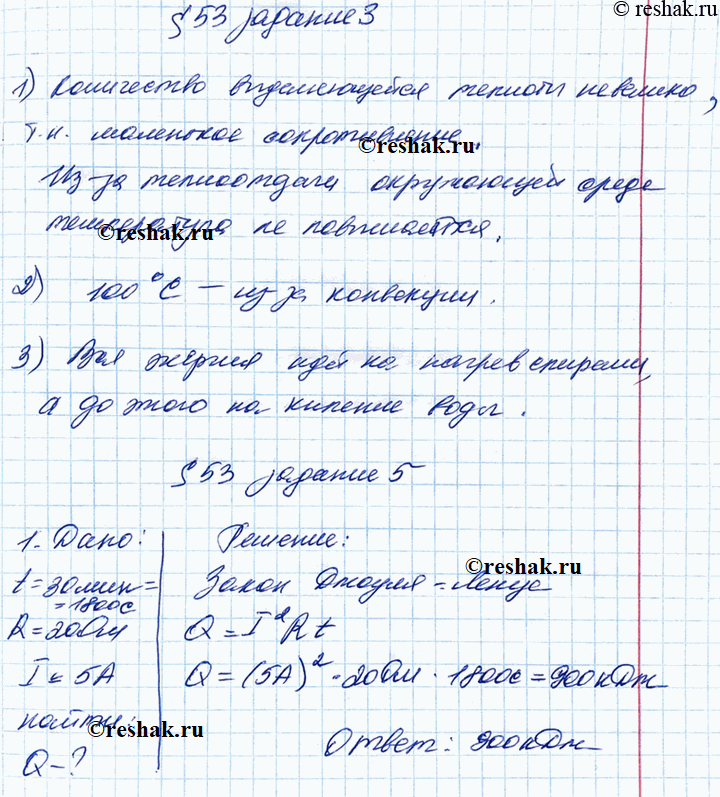 © reshak.ru
§53 задание 3
1) Количество выделяющейся теплоты невелико,
т.к. маленькое сопротивление.
©reshak.ru
Из-за теплоотдачи окружающей среде
температура не повышается.
©reshak.ru
2) 100°C – из за конвекции.
3) Вся энергия идёт на нагрев спирали,
а до этого на кипение воды.
§53 задание 5
1. Дано: Решение:
©reshak.ru
t = 30 мин = Закон Джоуля-Ленца
= 1800с
R = 20 Ом Q = I²Rt
I = 5А Q = (5А)² · 20 Ом · 1800с = 900 кДж
найти:
©reshak.ru
Ответ: 900 кДж
Q – ?